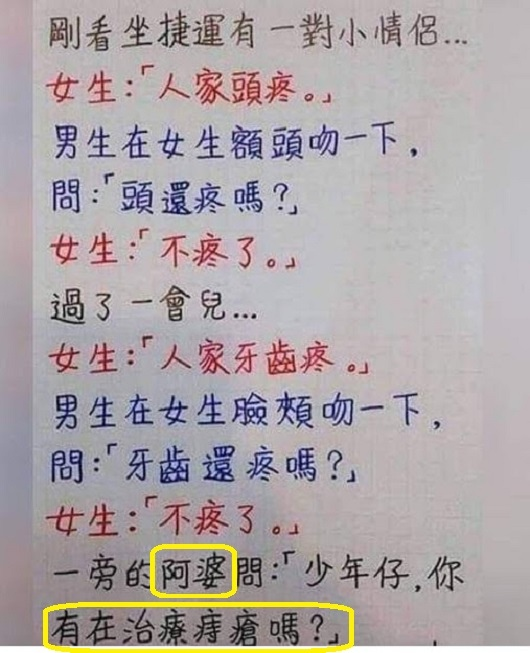 剛看坐捷運有一對小情侶...
女生:「人家頭疼。」
男生在女生額頭吻一下,
問:「頭還疼嗎?」
女生:「不疼了。」
過了一會兒...
女生:「人家牙齒疼。」
男生在女生臉頰吻一下,
問:「牙齒還疼嗎?」
女生:「不疼了。」
一旁的阿婆問:「少年仔,你
有在治療痔瘡嗎?」